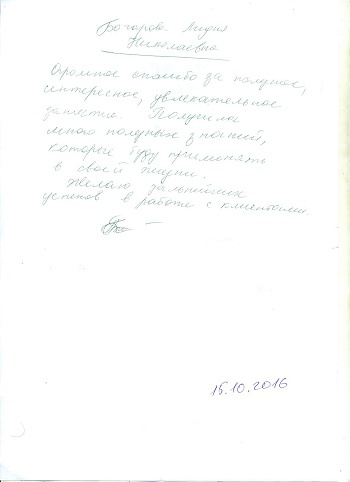 Бочарова Лидия
Николаевна
Огромное спасибо за полезное,
интересное, увлекательное
занятие. Получила
много полезных знаний,
которые буду применять
в своей жизни.
Желаю дальнейших
успехов в работе с клиентами.
15.10.2016